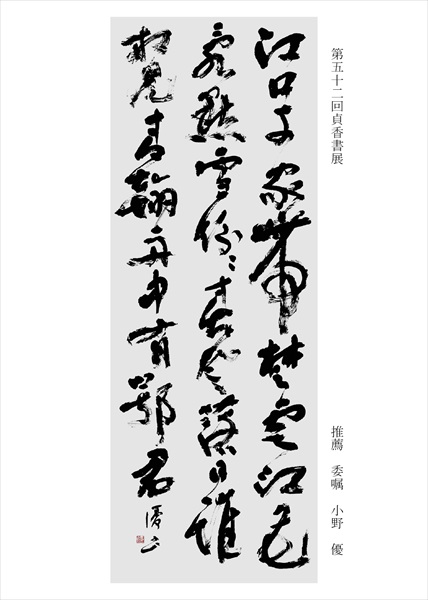 第五十二回貞香書展
推薦 委嘱 小野 優
江口千家帶楚雲江花
亂點雪紛〻春風落日誰
相見青翰舟中有鄂君 優書